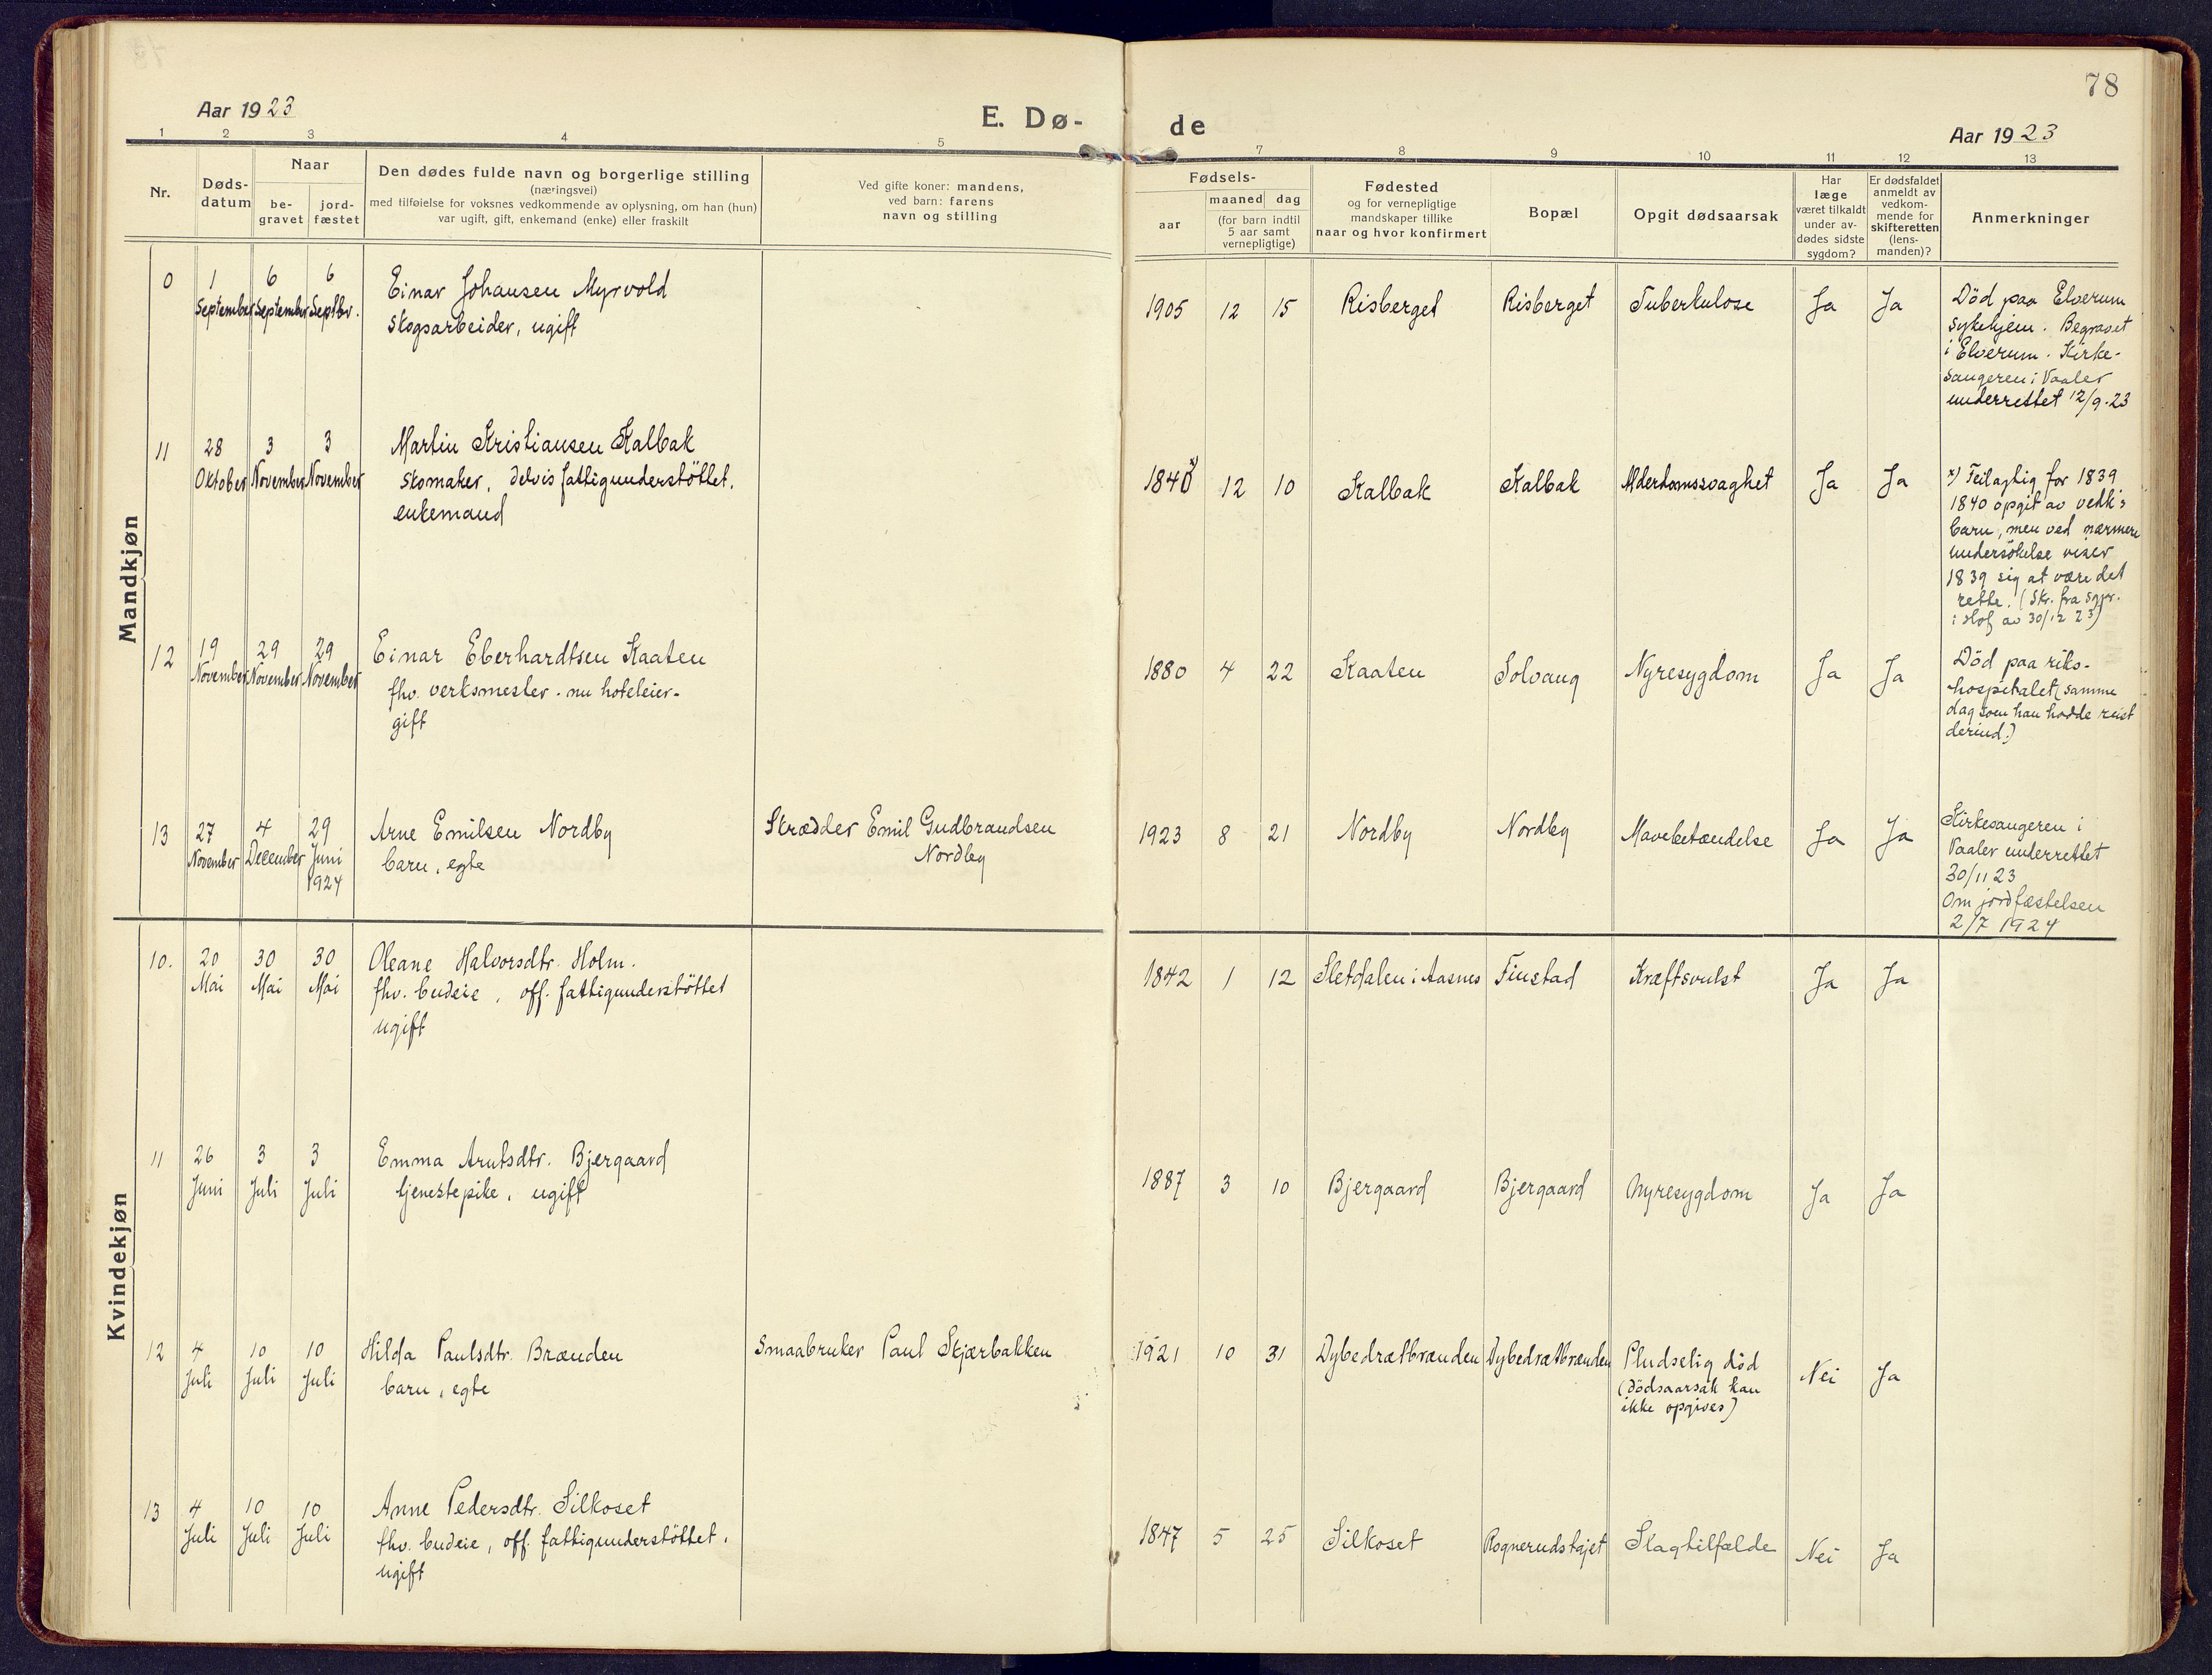 78
Aar 1923
E. Dø-
de
Aar 1923
1 2 3 4 5 6 7 8 9 10 11 12 13
Nr.
Døds-
datum
Naar
be-
gravet
jord-
fæstet
Den dødes fulde navn og borgerlige stilling
(næringsvei)
med tilføielse for voksnes vedkommende av oplysning, om han (hun)
var ugift, gift, enkemand (enke) eller fraskilt
Ved gifte koner: mandens,
ved barn: farens
navn og stilling
Fødsels-
aar
maaned dag
(for barn indtil
5 aar samt
vernepligtige)
Fødested
og for vernepligtige
mandskaper tillike
naar og hvor konfirmert
Bopæl
Opgit dødsaarsak
Har
læge
været tilkaldt
under av-
dødes sidste
sygdom?
Er dødsfaldet
anmeldt av
vedkom-
mende for
skifteretten
(lens-
manden)?
Anmerkninger
Mandkjøn
0
1
September
6
September
6
Septbr.
Einar Johansen Myrvold
skogsarbeider, ugift
1905 12 15
Risberget
Risberget
Tuberkulose
Ja
Ja
Död paa Elverum
sykehjem. Begravet
i Elverum. Kirke-
sangeren i Vaaler
underrettet 12/9.23
11
28
Oktober
3
November
3
November
Martin Kristiansen Kalbak
skomaker, delvis fattigunderstöttet,
enkemand
1840 x) 12 10
Kalbak
Kalbak
Alderdomssvaghet
Ja
Ja
x) Feilagtig for 1839
1840 opgit av vedk's
barn, men ved nærmere
undersökelse viser
1839 sig at være det
rette. (Skr. fra sgpr.
i Hof av 30/12 23)
12
19
November
29
November
29
November
Einar Eberhardtsen Kaaten
fhv. verksmester. nu hoteleier-
gift
1880 4 22
Kaaten
Solvang
Nyresygdom
Ja
Ja
Död paa riks-
hospitalet (samme
dag som han hadde reist
derind.)
13
27
November
4
December
29
Juni
1924
Arne Emilsen Nordby
barn, egte
Skrædder Emil Gudbrandsen
Nordby
1923 8 21
Nordby
Nordby
Mavebetændelse
Ja
Ja
Kirkesangeren i
Vaaler underrettet
30/11 23
Om jordfæstelsen
2/7 1924
Kvindekjøn
10.
20
Mai
30
Mai
30
Mai
Oleane Halvorsdtr. Holm.
fhv. budeie, off. fattigunderstöttet
ugift
1842 1 12
Sletdalen i Aasnes
Finstad
Kræftsvulst
Ja
Ja
11
26
Juni
3
Juli
3
Juli
Emma Arntsdtr. Bjergaard
tjenestepike, ugift
1887 3 10
Bjergaard
Bjergaard
Nyresygdom
Ja
Ja
12
4
Juli
10
Juli
10
Juli
Hilda Paulsdtr. Brænden
barn, egte
Smaabruker Paul Skjærbakken
1921 10 31
Dybedrætbrænden
Dybedrætbrænden
Pludselig död
(dödsaarsak kan
ikke opgives)
Nei
Ja
13
4
Juli
10
Juli
10
Juli
Anne Pedersdtr. Silkoset
fhv. budeie, off. fattigunderstöttet,
ugift
1847 5 25
Silkoset
Rognerudstøjet
Slagtilfælde
Nei
Ja